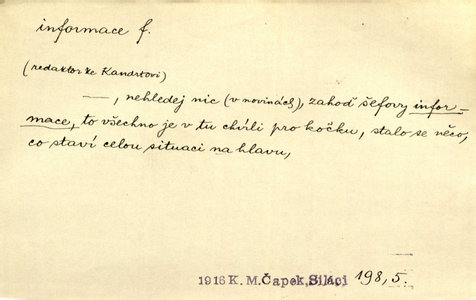 informace f.
(redaktor ke Kandrtovi)
—, nehledej nic (v novinách), zahoď šéfovy infor-
mace, to všechno je v tu chvíli pro kočku, stalo se něco,
co staví celou situaci na hlavu,
1916 K. M. Čapek, Siláci 198,5.